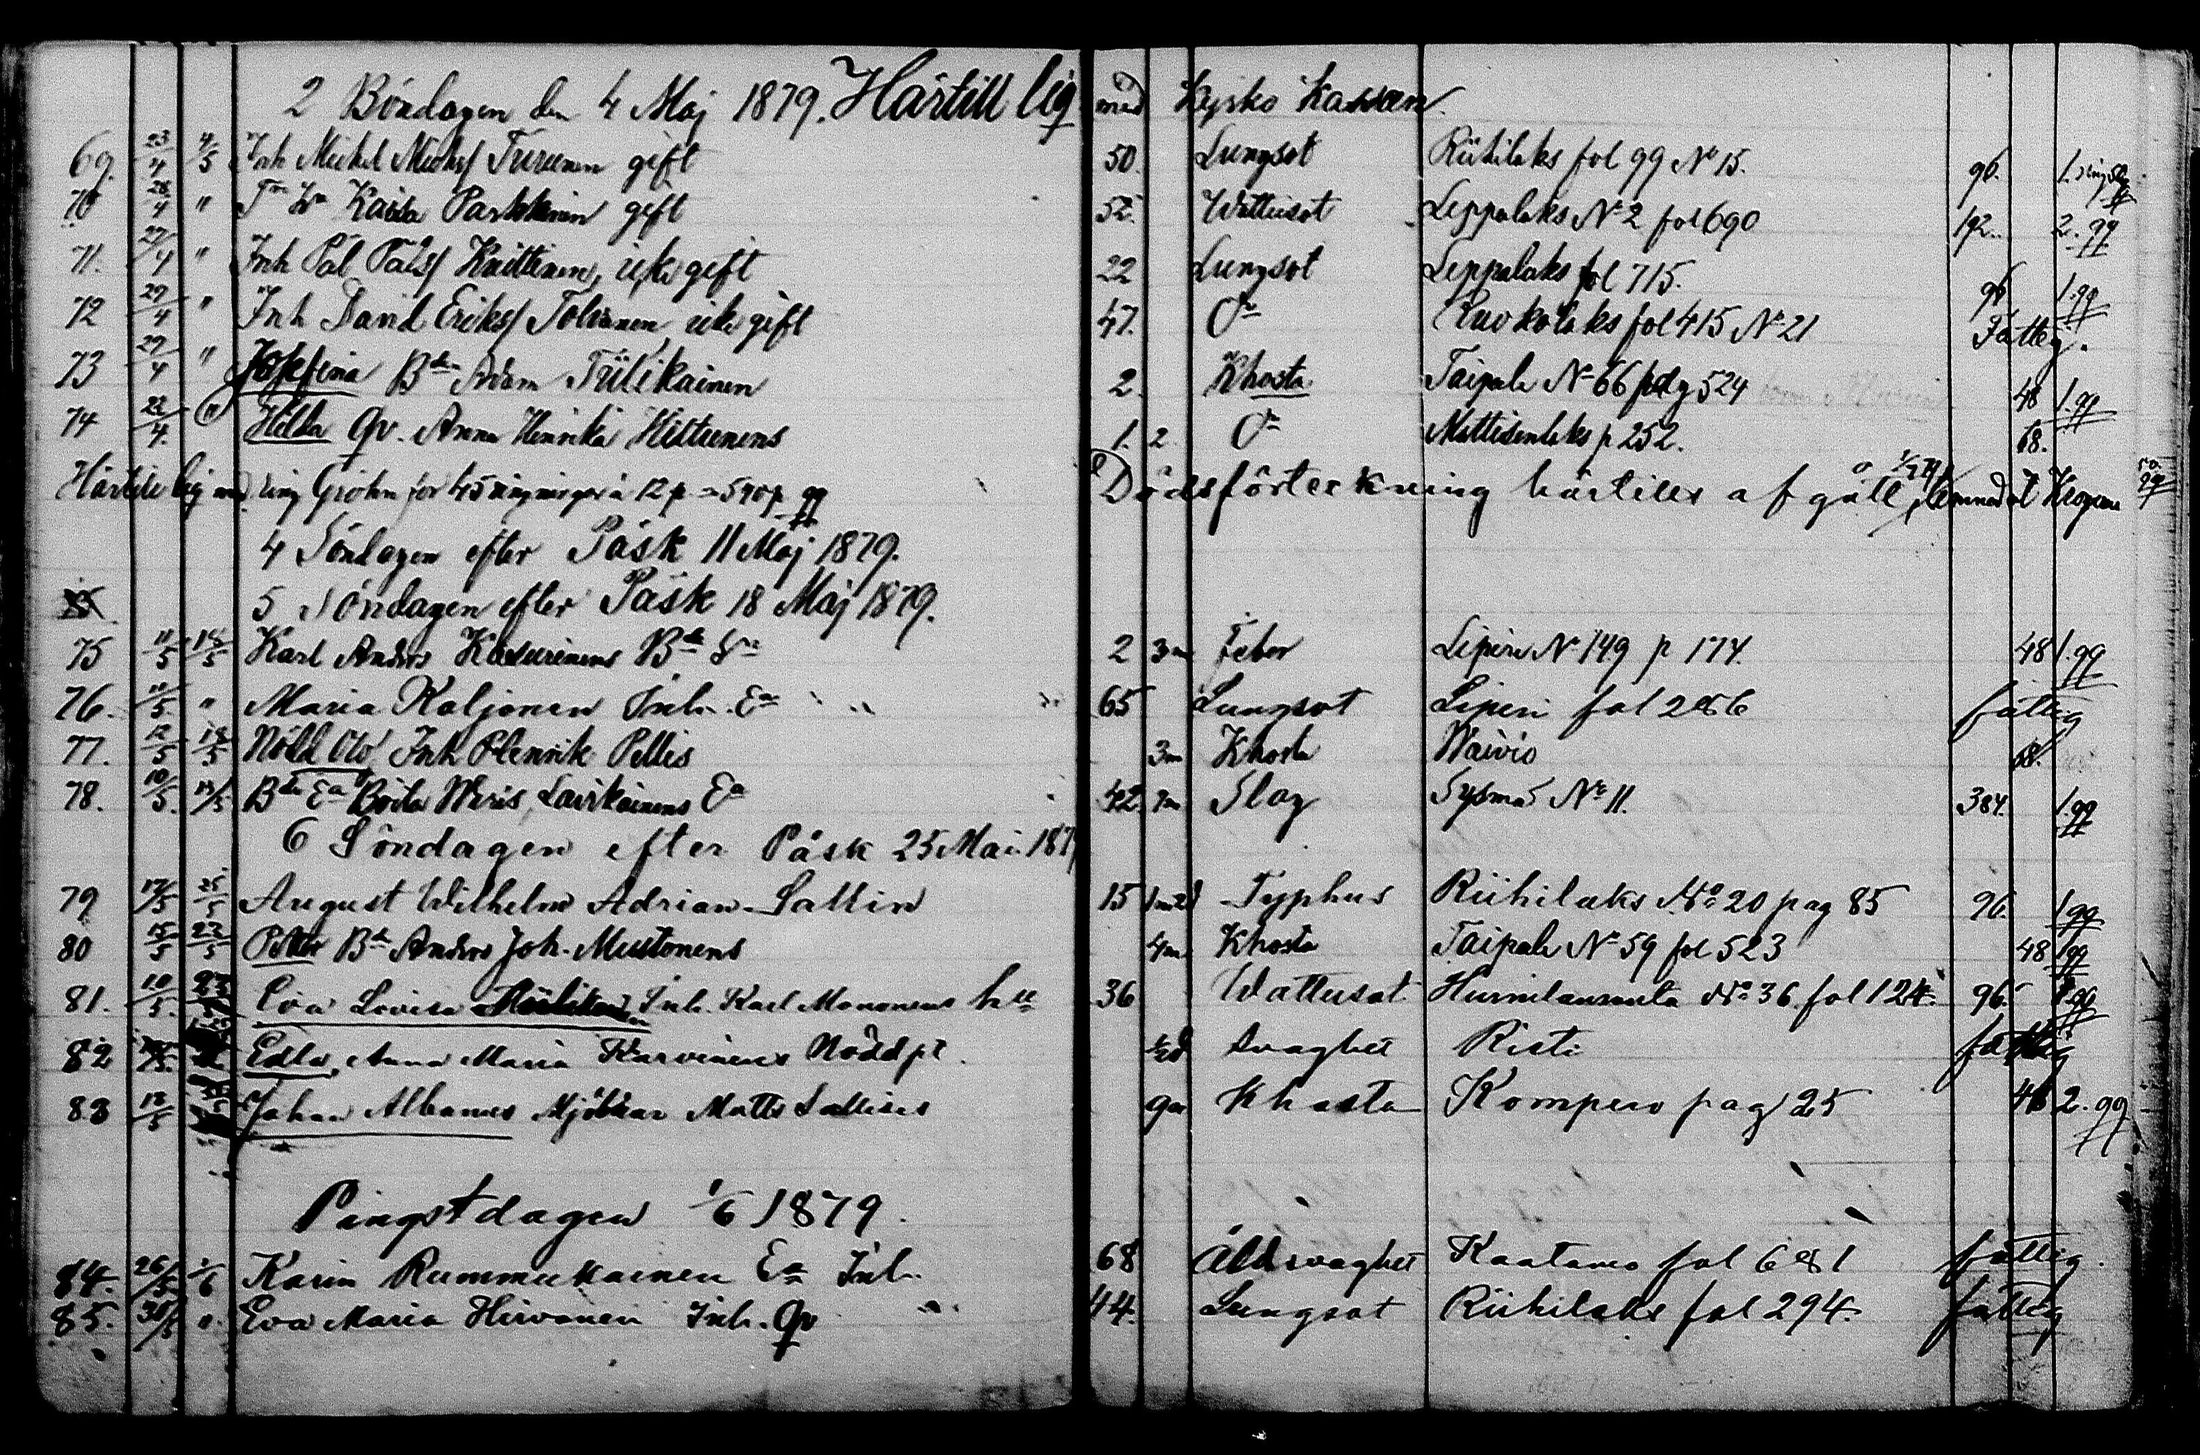 2 Böndagen den 4 Maj 1879. Härtill lig med Kyrko Kassan
69. 23/4 4/5 Inh Mickel Michs/ Turunen gift 50. Lungsot Riihilaks fol 99 No 15. 96. 1.
70 28/4 " Kaisa Parkkinen gift 52. Wattusot Leppälaks No 2 fol 690 192. 2. gg
71. 27/4 " Inh Pål Påls/ Knittinen, icke gift 22 Lungsot Leppalaks fol 715. 96 1. gg
72 29/4 " Inh David Eriks/ Tolvanen icke gift 47. Do Ruokolaks fol 415 No 21 Fattig.
73 29/4 " Josefina Bdn Adam Tiilikainen 2. Khosta Taipale No 66 pag 524 48 1. gg
74 22/4 " Hilda Qv. Anna Henrika Hiltunens 1. 2 Do Mattisenlaks p 252. 68.
Härtill lig med ring Gröhn for 45 ringningar a 12 p = 540 p gg Dödsförteckning härtills afgått, Kronan
4 Söndagen efter Påsk 11 Maj 1879.
5 Söndagen efter Påsk 18 Maj 1879.
75 11/5 18/5 Karl Anders Kasurinens Bd Sn 2 3m Feber Liperi No 149 p 174. 48 1. gg
76. 11/5 " Maria Kaljonen Inh. Ea 65 Lungsot Liperi fol 286 fattig
77. 12/5 18/5 Nöld Oto Inh P Henrik Pellis 3m Khosta Waivio 68.
78. 10/5. Bde Ea Boila Lavikainens Ea 42 7m Slag Sysmä No 11. 384. 1. gg
6 Söndagen efter Påsk 25 Mai 187
79 17/5 25/5 August Wilhelm Adrian Sallin 15 1m2d Typhus Riihilaks No 20 pag 85 96. 1 gg
80 15/5 22/5 Petter Bd Anders Joh. Mustonens 4m Khosta Taipale No 59 fol 523 48 1 gg
81. 10/5. Eva Lovisa Inh. Karl Manonens 36 Wattusot No 36. fol 124. 96. gg
82 Edla, Anna Maria Karvinens Nöddpt. 1/2d Svaghet Risti fattig
83 12/5 Johan Albanus Mjölnar Matts Sallises 9m Khosta Kompero pag 25 48 2. gg
Pingstdagen 1/6 1879.
84. 26/5 1/6 Karin Rummukainen Ea Inh. 68 Åldsvaghet Kaatamo fol 681 fattig.
85. 30/5 " Eva Maria Hirvonen Inh. Qv 44. Lungsot Riihilaks fol 294. fattig